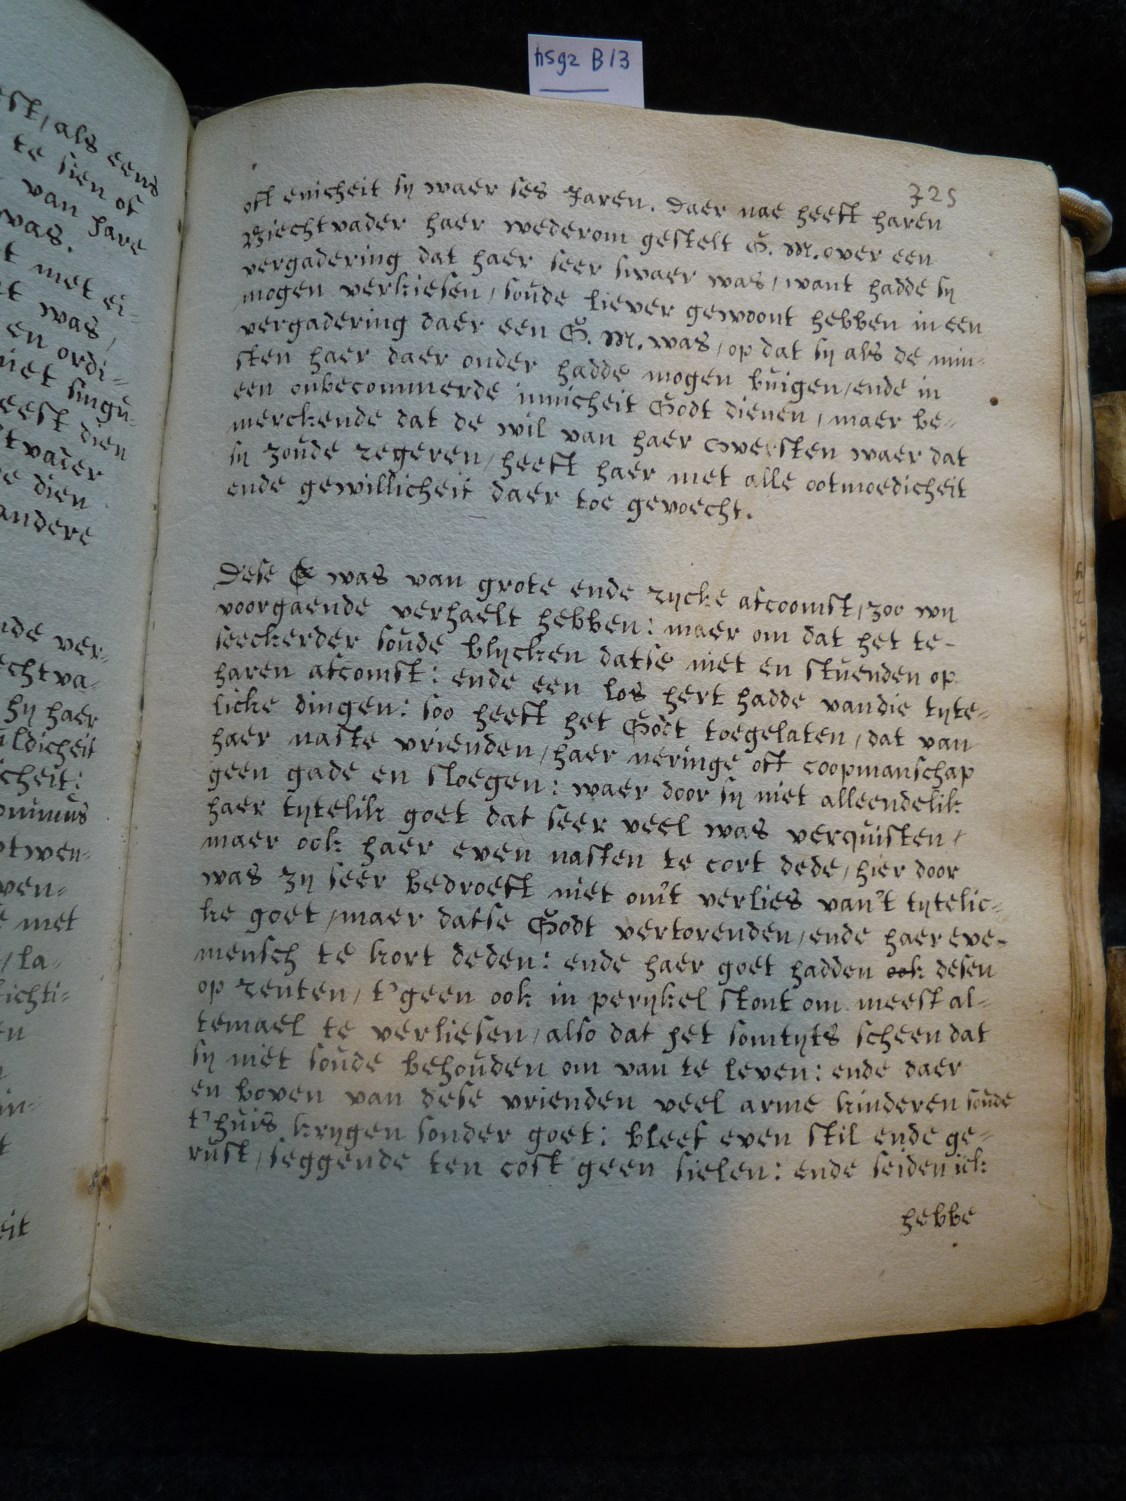 hsgz B13
325
oft enicheit sy waer ses Jaren. Daer nae heeft haren
Biechtvader haer wederom gestelt G. M. over een
vergadering dat haer seer swaer was, want hadde sy
mogen verkiesen, soude liever gewoont hebben in een
vergadering daer een G. M. was, op dat sy als de min-
sten haer daer onder hadde mogen buigen, ende in
een onbecommerde innicheit Godt dienen, maer be-
merckende dat de wil van haer Oversten waer dat
sy zoude regeren, heeft haer met alle ootmoedicheit
ende gewillicheit daer toe gevoecht.
Dese was van grote ende rycke afcoomst, zoo wy
voorgaende verhaelt hebben: maer om dat het te-
seeckerder soude blycken datse niet en stuenden op
haren afcomst: ende een los hert hadde van die tyte-
licke dingen: soo heeft het Godt toegelaten, dat van
haer naste vrienden, haer neringe oft coopmanschap
geen gade en sloegen: waer door sy niet alleendelik
haer tytelik goet dat seer veel was verquisten,
maer ook haer even nasten te cort dede, hier door
was zy seer bedroeft niet om't verlies van't tytelic-
ke goet, maer datse Godt vertorenden, ende haer eve-
mensch te kort deden: ende haer goet hadden ook desen
op renten, t'geen ook in perykel stont om meest al-
temael te verliesen, also dat het somtyts scheen dat
sy niet soude behouden om van te leven: ende daer
en boven van dese vrienden veel arme kinderen soude
t'huis krygen sonder goet: bleef even stil ende ge-
rust, seggende ten cost geen sielen: ende seiden ick
hebbe